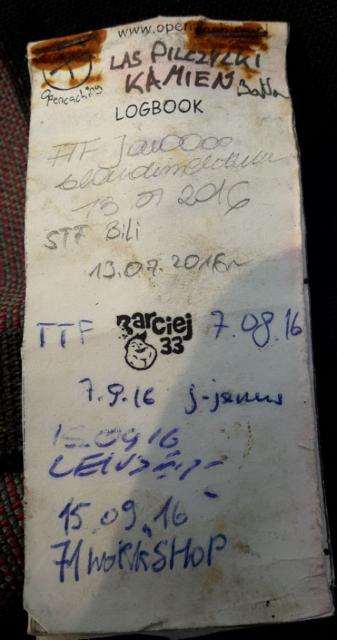 www.opencaching
Opencaching
LAS PILCZYCKI
KAMIEŃ
LOGBOOK
FTF
13 07 2016
STF Bili
13.07.2016r
TTF Barciej 33 7.08.16
7.9.16 j-janus
15.09.16
15.09.16
71WORKSHOP